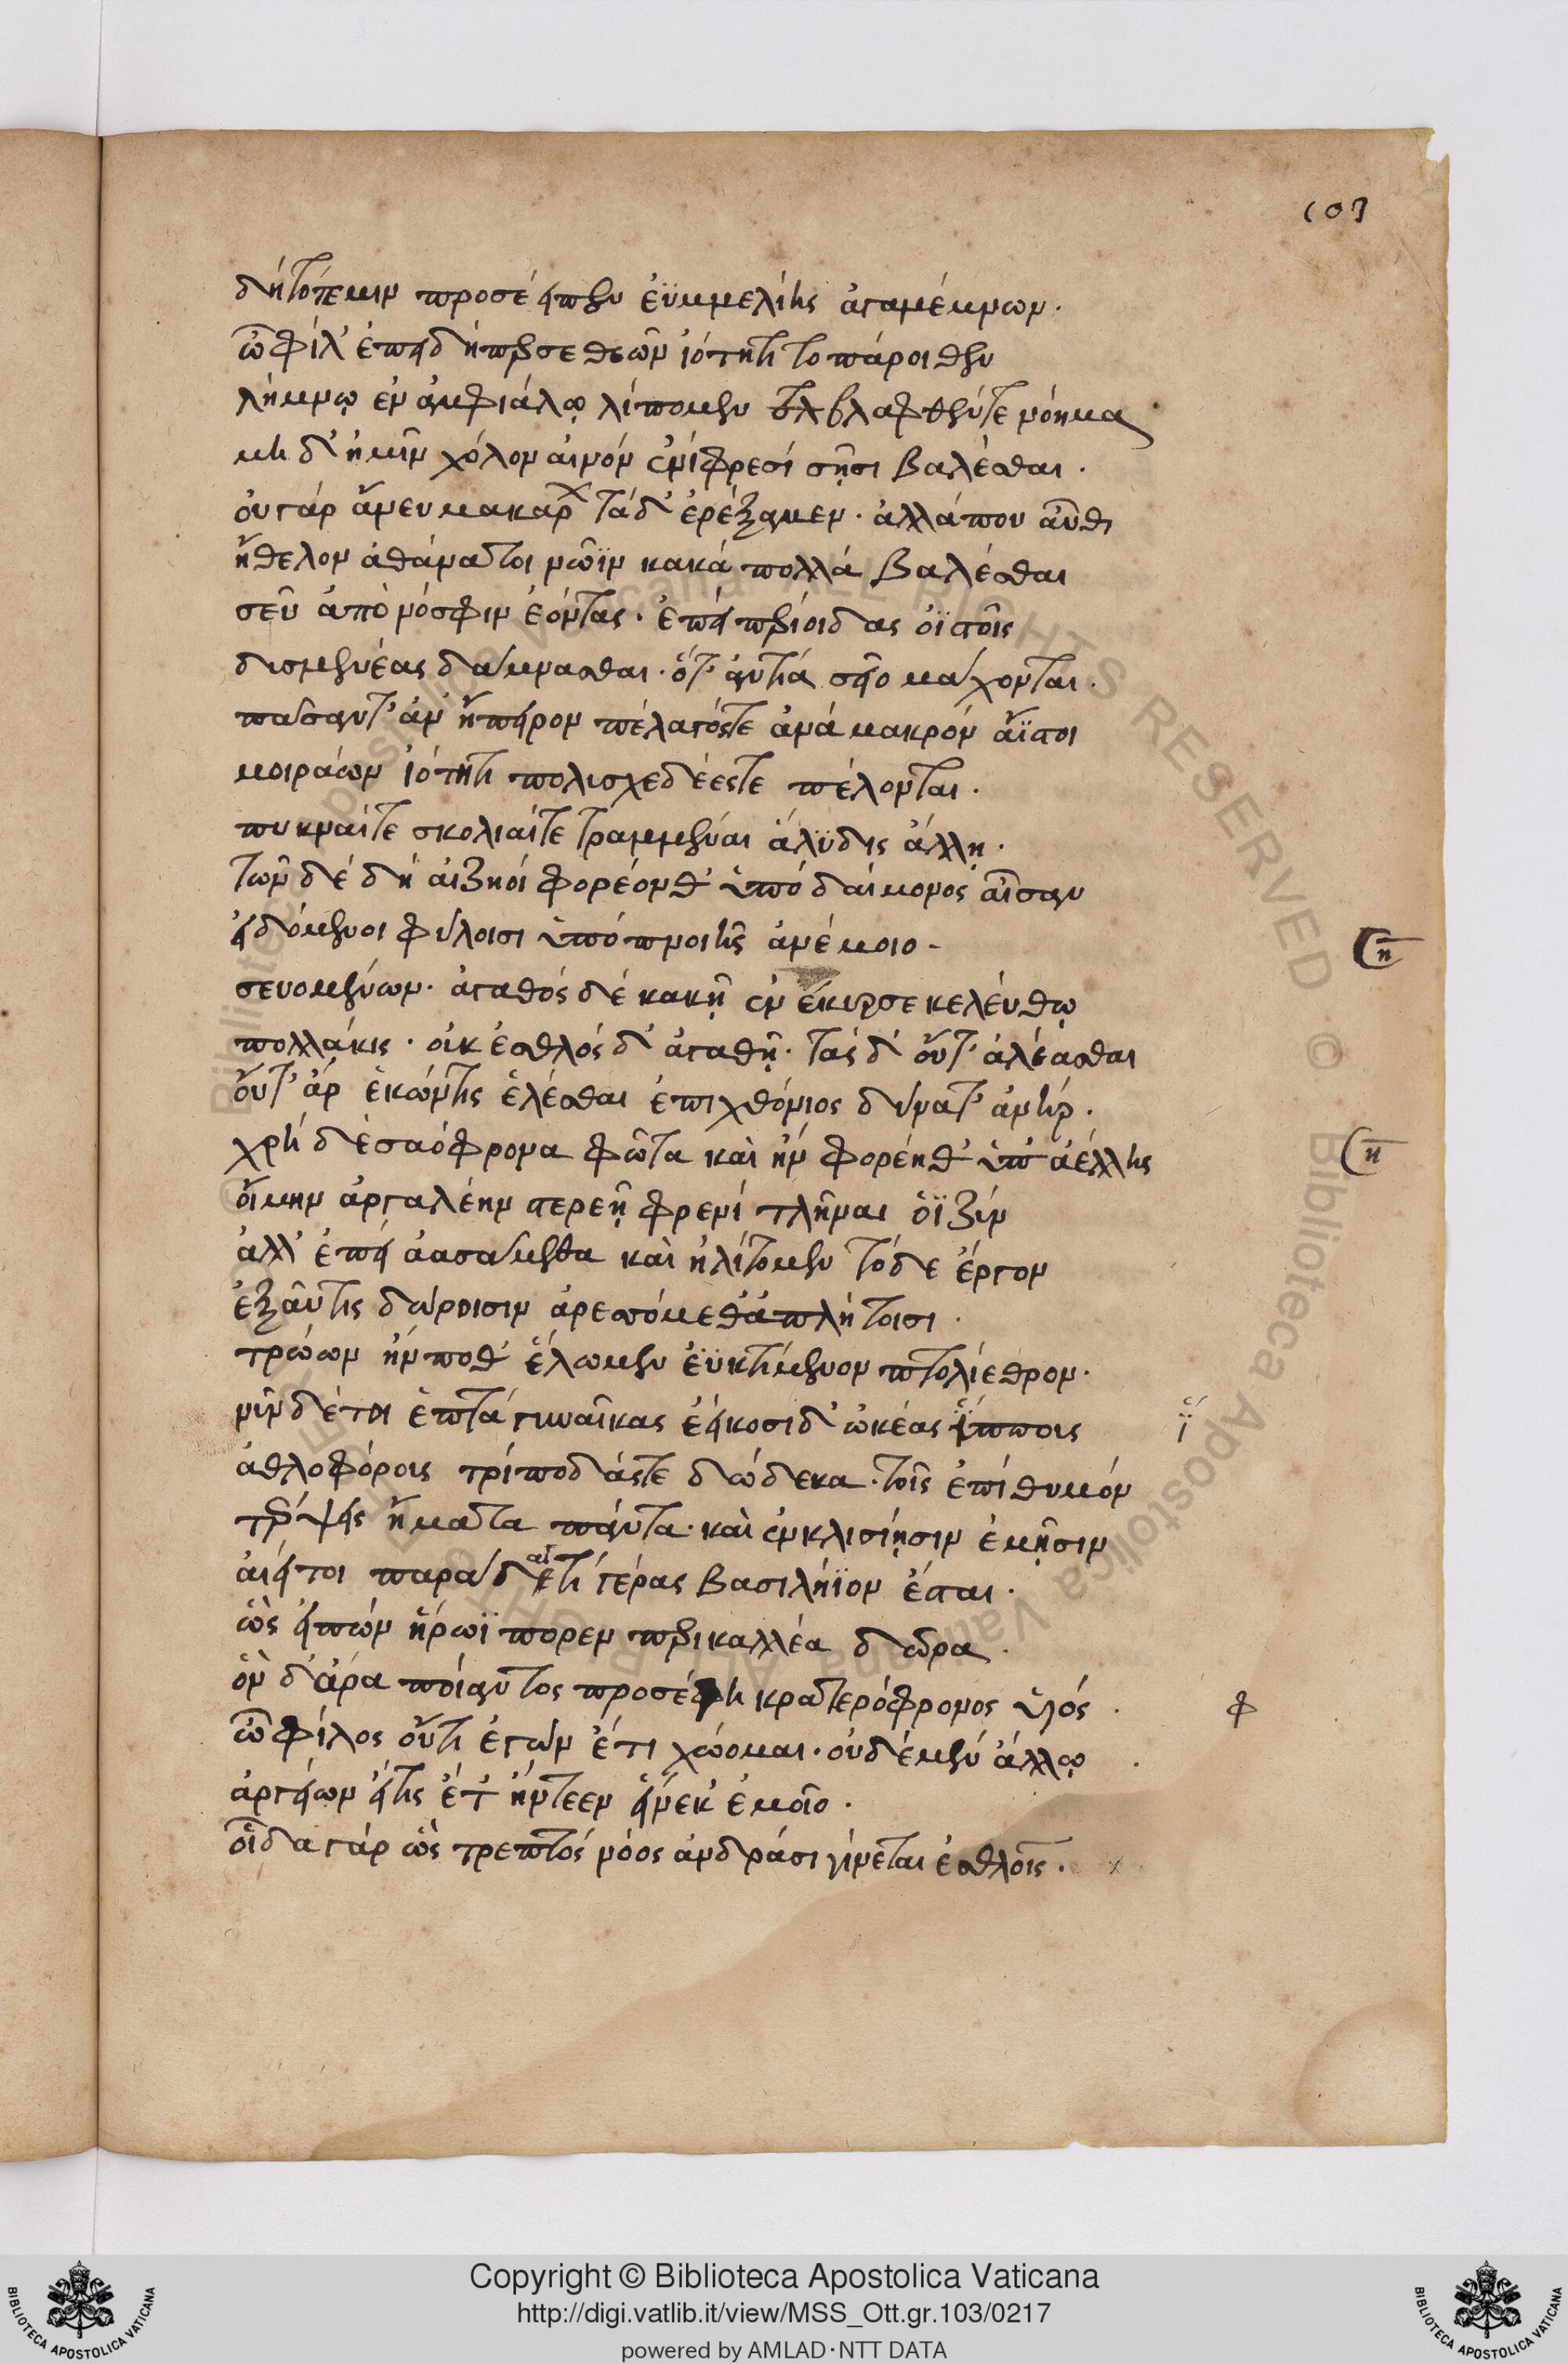 107
δὴ τότε μιν προσέειπεν ἐϋμμελίης ἀγαμέμνων.
ὦ φίλ' ἐπειδήπερ σε θεῶν ἰότητι τοπάροιθεν
λήμνῳ ἐν ἀμφιάλῳ λίπομεν βλαφθέντε νόημα
μὴ δ' ἡμῖν χόλον αἰνὸν ἐνὶ φρεσὶ σῇσι βαλέσθαι.
οὐ γὰρ ἄνευ μακάρων τάδ' ἐρέξαμεν. ἀλλά που αὐθι
ἤθελον ἀθάνατοι νῶϊν κακὰ πολλὰ βαλέσθαι
σεῦ ἀπὸ νόσφιν ἐόντας. ἐπεὶ περίοιδας ὀϊστοῖς
δυσμενέας δάμνασθαι. ὅτ' ἀντία σεῖο μάχονται.
πᾶσαν τ' ἂν ἤπειρον πέλαγόςτε ἀνὰ μακρὸν ἄϊστοι
μοιράων ἰότητι πολυσχεδέεςτε πέλονται.
πυκναί τε σκολιαί τε τραμμέναι ἄλϋδις ἄλλῃ.
τῶν δὲ δὴ αἰζηοὶ φορέονθ' ὑπὸ δαίμονος αἶσαν
εἰδόμενοι φύλοισι ὑπὸ πνοιῆς ἀνέμοιο-
σευομένων. ἀγαθὸς δὲ κακῇ ἐν ἔκυρσε κελεύθῳ
πολλάκις. οὐκ ἐσθλὸς δ' ἀγαθῇ. τὰς δ' οὔτ' ἀλέασθαι
οὔτ' ἂρ ἑκώντις ἑλέσθαι ἐπιχθόνιος δύνατ' ἀνήρ.
χρὴ δὲ σαόφρονα φῶτα καὶ ἢν φορέηθ' ὑπ' ἀέλλης
οἴμην ἀργαλέην στερεῇ φρενὶ τλῆναι ὀϊζύν
ἀλλ' ἐπεὶ ἀασάμεθα καὶ ἠλίτομεν τόδε ἔργον
ἐξαῦτις δώροισιν ἀρεσόμεθ' ἀπλήτοισι.
τρώων ἤν ποθ' ἕλωμεν ἐϋκτίμενον πτολίεθρον.
νῦν δέ τοι ἑπτὰ γυναῖκας ἐείκοσι δ' ὠκέας ἵππους
ἀθλοφόρους τρίποδάςτε δώδεκα. τοῖς ἐπὶ θυμὸν
τέρψεις ἤματα πάντα. καὶ ἐν κλισίῃσιν ἐμῇσιν
αἰεί τοι παρὰ δαιτὶ γέρας βασιλήϊον ἔσται.
ὣς εἰπὼν ἥρωϊ πόρεν περικαλλέα δῶρα.
ὃν δ' ἄρα ποίαντος προσέφη κρατερόφρονος υἱός.
ὦ φίλος οὔτι ἐγὼν ἔτι χώομαι. οὐδὲ μὲν ἄλλῳ
ἀργείων εἴτις ἔτ' ἤντεεν εἵνεκ' ἐμοῖο.
οἶδα γὰρ ὡς τρεπτὸς νόος ἀνδράσι γίνεται ἐσθλοῖς.
Copyright © Biblioteca Apostolica Vaticana
http://digi.vatlib.it/view/MSS_Ott.gr.103/0217
powered by AMLAD·NTT DATA